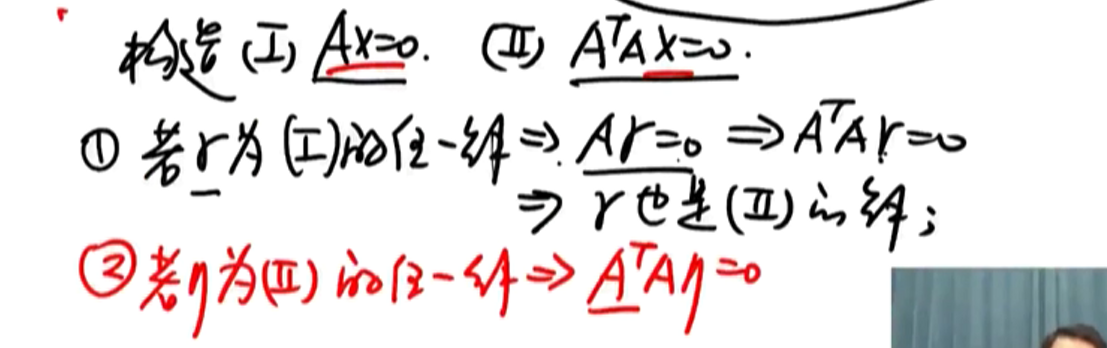 构造 (I) Ax=0. (II) AᵀAx=0.
① 若r为(I)的任一解⇒Ar=0⇒AᵀAr=0
⇒ r也是(II)的解;
② 若η为(II)的任一解⇒AᵀAη=0